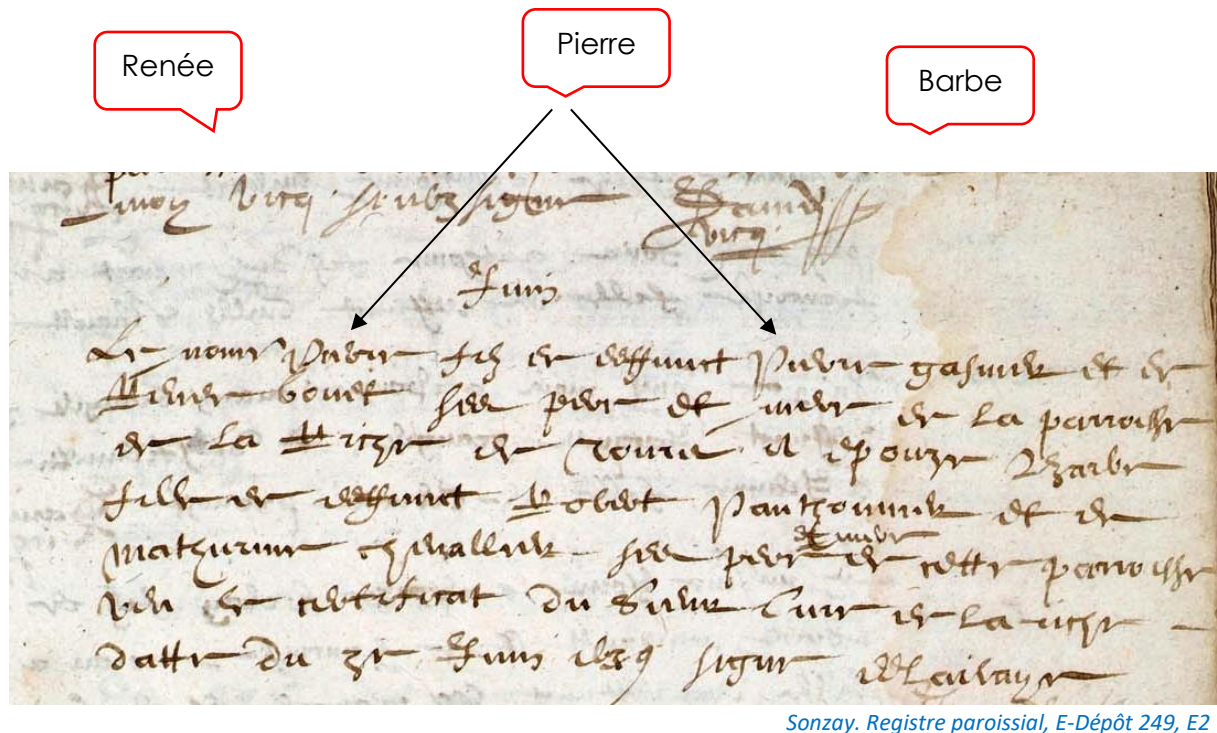 Renée
Pierre
Barbe
Juin
Le nome Pierre filz de deffunct Pierre gasnier et de
Renee bouet ses pere et mere de la parroisse
de la Riche de Tours a epouze Barbe
fille de deffunct Robert Panthonnier et de
Mathurine chevallier ses pere et mere de cette parroisse
veu le certificat du Sieur Cure de la riche
datte du 3e Juin 1639 signe
Sonzay. Registre paroissial, E-Dépôt 249, E2